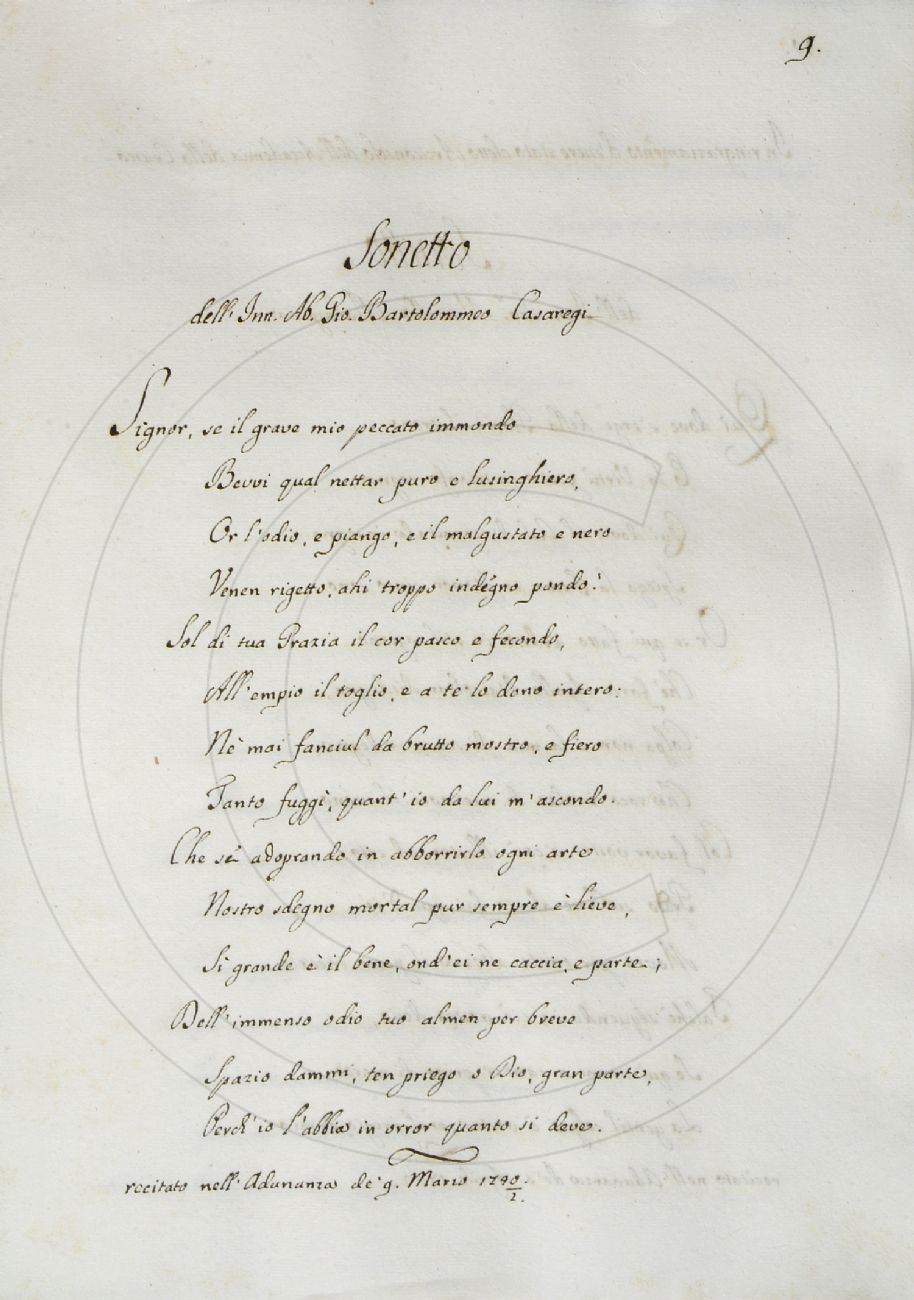 9.
Sonetto
dell' Inn. Ab. Gio. Bartolommeo Casaregi
Signor, se il grave mio peccato immondo
Bevvi qual nettar puro e lusinghiero,
Or l'odio, e piango, e il malgustato e nero
Venen rigetto, ahi troppo indegno pondo!
Sol di tua Grazia il cor pasco e fecondo,
All'empio il toglio, e a te lo dono intero:
Nè mai fanciul da brutto mostro, e fiero
Tanto fuggì, quant'io da lui m'ascondo.
Che se adoprando in abborrirlo ogni arte
Nostro sdegno mortal pur sempre è lieve,
Sì grande è il bene, ond'ei ne caccia, e parte;
Dell'immenso odio tuo almen per breve
Spazio dammi, ten priego o Dio, gran parte,
Perch'io l'abbia in orror quanto si deve.
recitato nell'Adunanza de' 9. Marzo 1740/1.